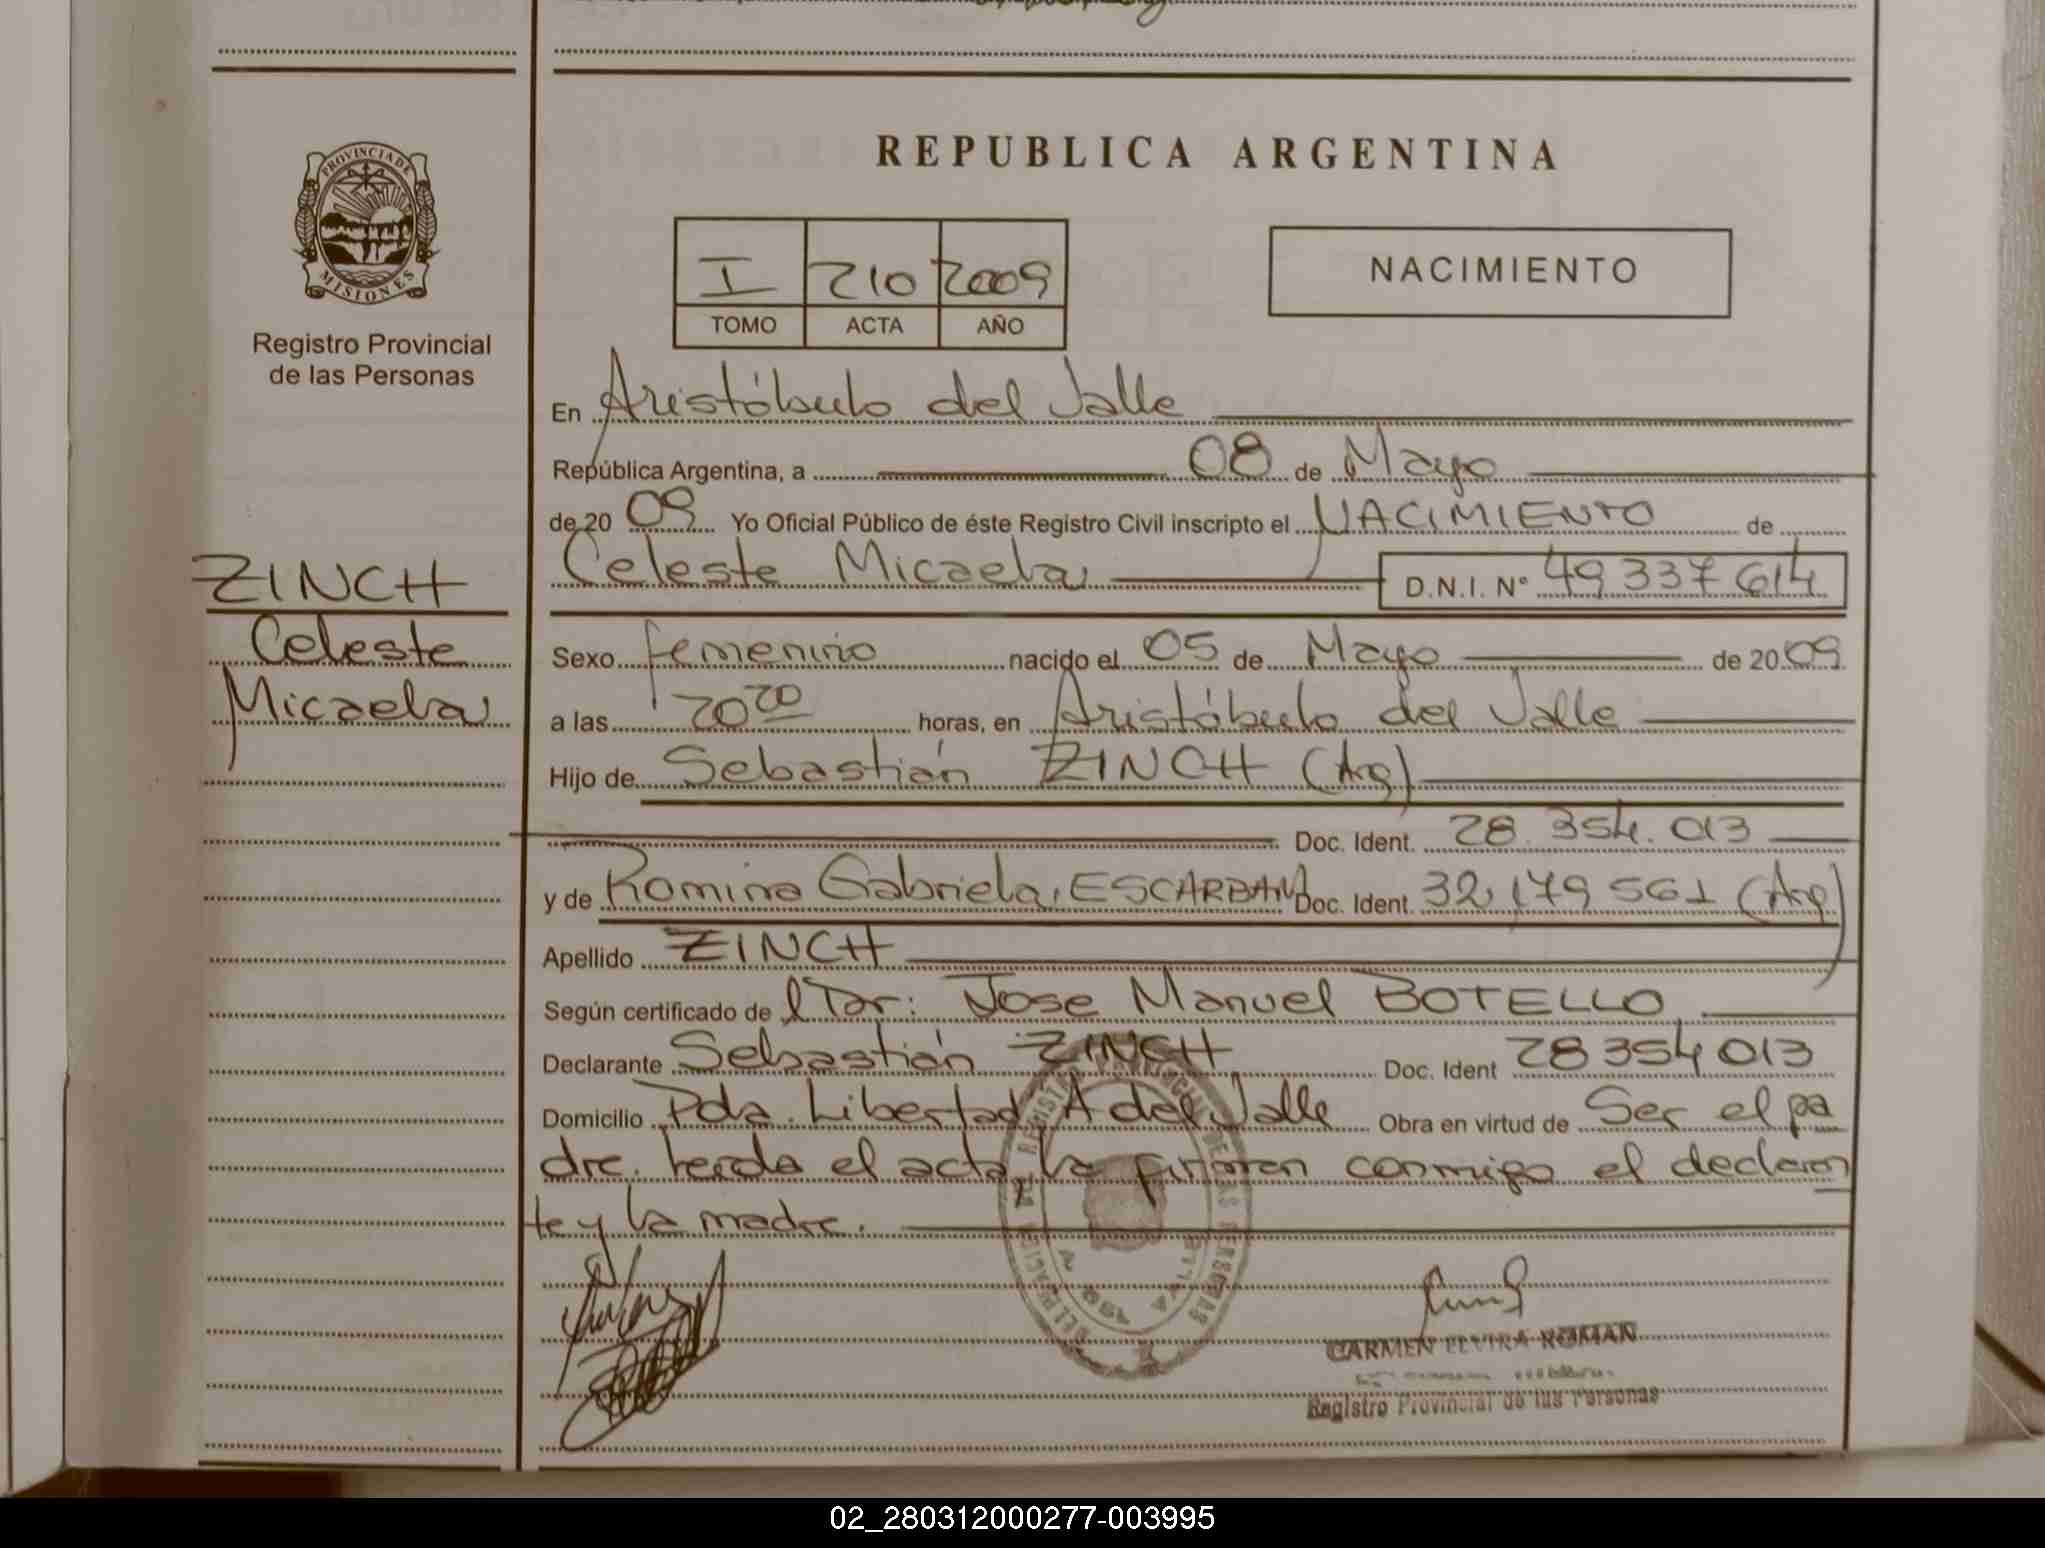 REPUBLICA ARGENTINA
PROVINCIA DE
MISIONES
Registro Provincial
de las Personas
I 210 2009
TOMO ACTA AÑO
NACIMIENTO
En Aristóbulo del Valle
República Argentina, a 08 de Mayo
de 20 09 Yo Oficial Público de éste Registro Civil inscripto el NACIMIENTO de
Celeste Micaela D.N.I. Nº 49337614
ZINCH
Celeste
Micaela
Sexo femenino nacido el 05 de Mayo de 20 09
a las 20 20 horas, en Aristóbulo del Valle
Hijo de Sebastián ZINCH (Arg)
Doc. Ident. 28.354.013
y de Romina Gabriela, ESCARBAN Doc. Ident. 32,179 561 (Arg)
Apellido ZINCH
Según certificado de Dr: Jose Manuel BOTELLO
Declarante Sebastián ZINCH Doc. Ident 28354013
Domicilio Pda. Libertad A del Valle Obra en virtud de Ser el pa
dre. Leida el acta la firman conmigo el declaran
te y la madre.
CARMEN ELVIRA ROMAN
Registro Provincial de las Personas
02_280312000277-003995